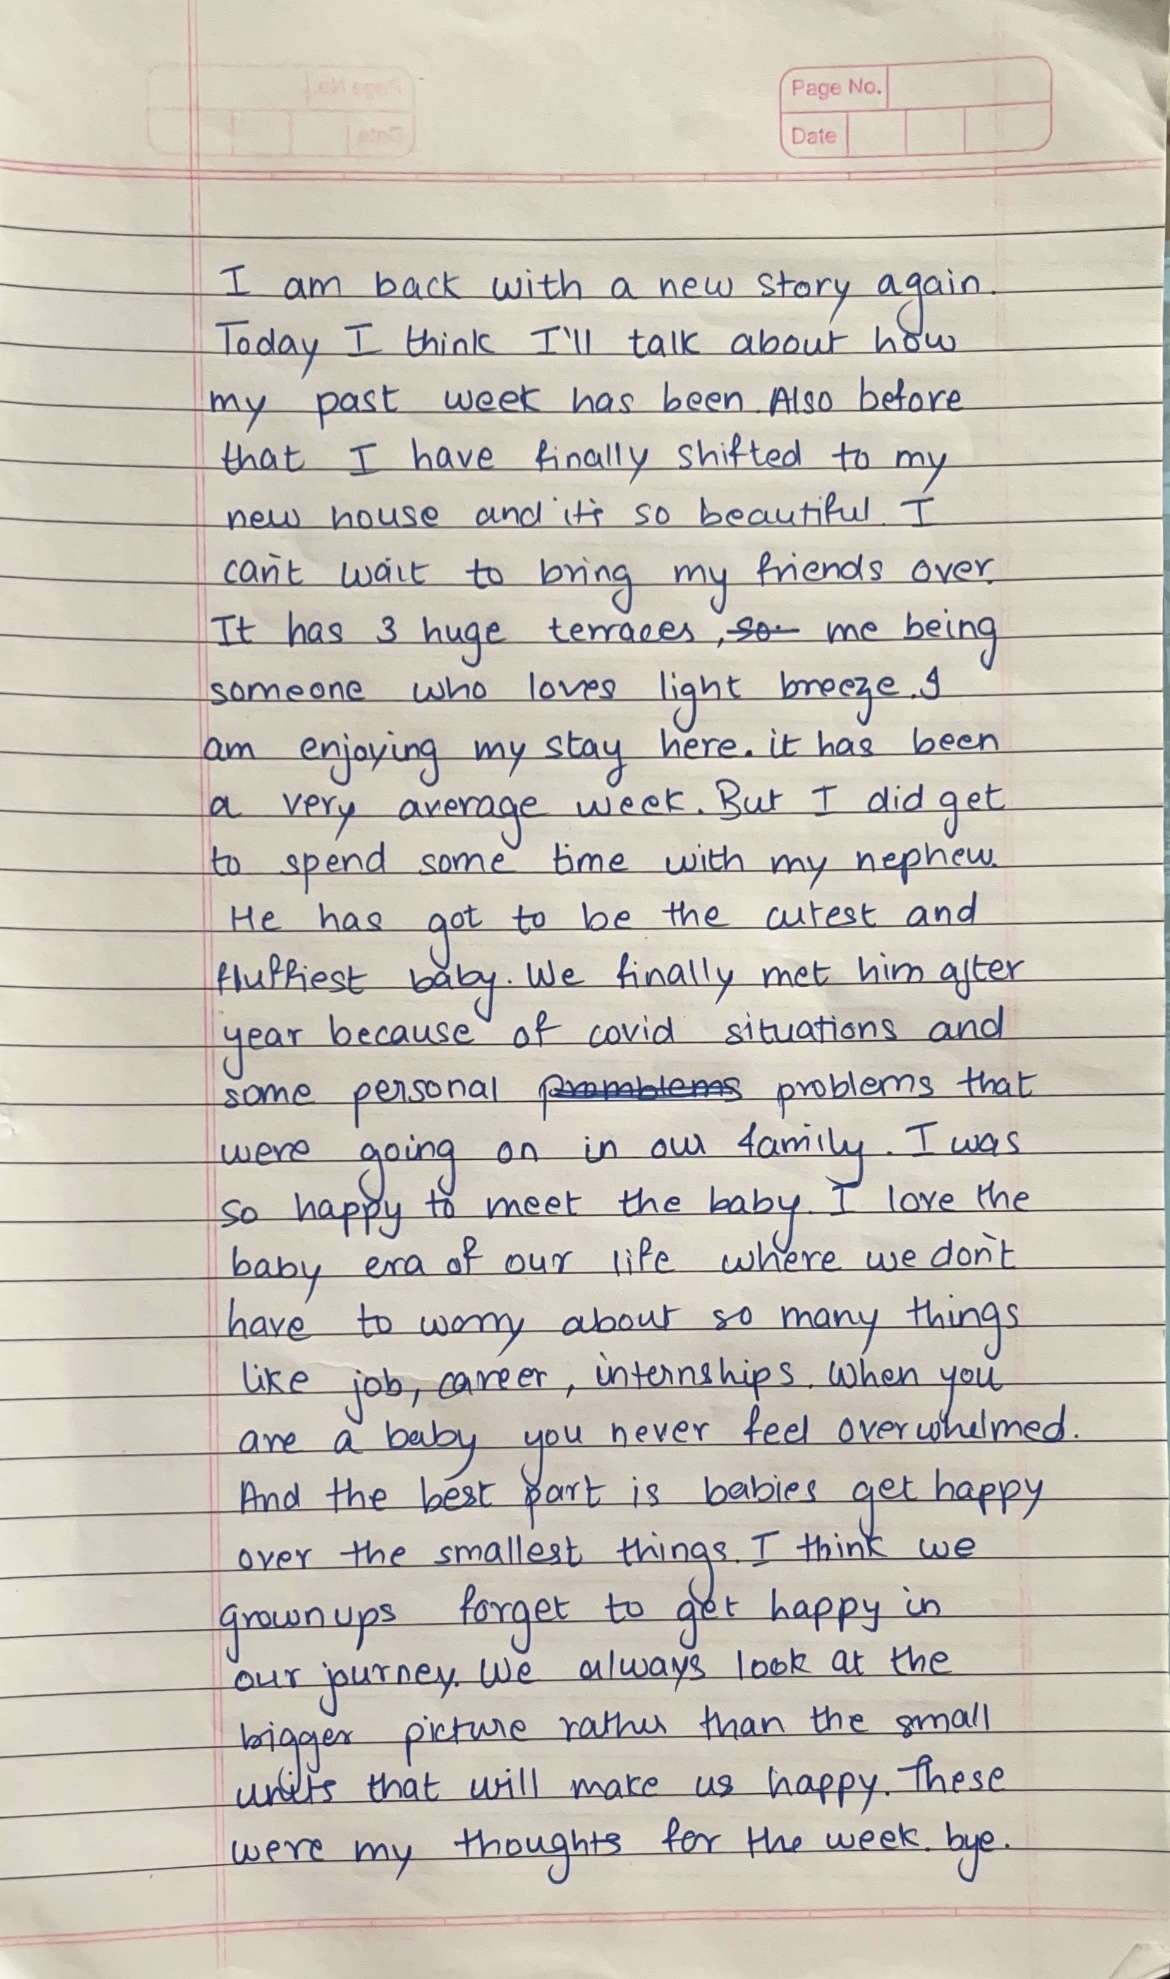 Page No.
Date
I am back with a new story again.
Today I think I'll talk about how
my past week has been. Also before
that I have finally shifted to my
new house and it's so beautiful. I
can't wait to bring my friends over.
It has 3 huge terraces, so me being
someone who loves light breeze. I
am enjoying my stay here. it has been
a very average week. But I did get
to spend some time with my nephew.
He has got to be the cutest and
fluffiest baby. We finally met him after
year because of covid situations and
some personal promblems problems that
were going on in our family. I was
so happy to meet the baby. I love the
baby era of our life where we don't
have to worry about so many things
like job, career, internships. When you
are a baby you never feel overwhelmed.
And the best part is babies get happy
over the smallest things. I think we
grownups forget to get happy in
our journey. We always look at the
bigger picture rather than the small
units that will make us happy. These
were my thoughts for the week. bye.